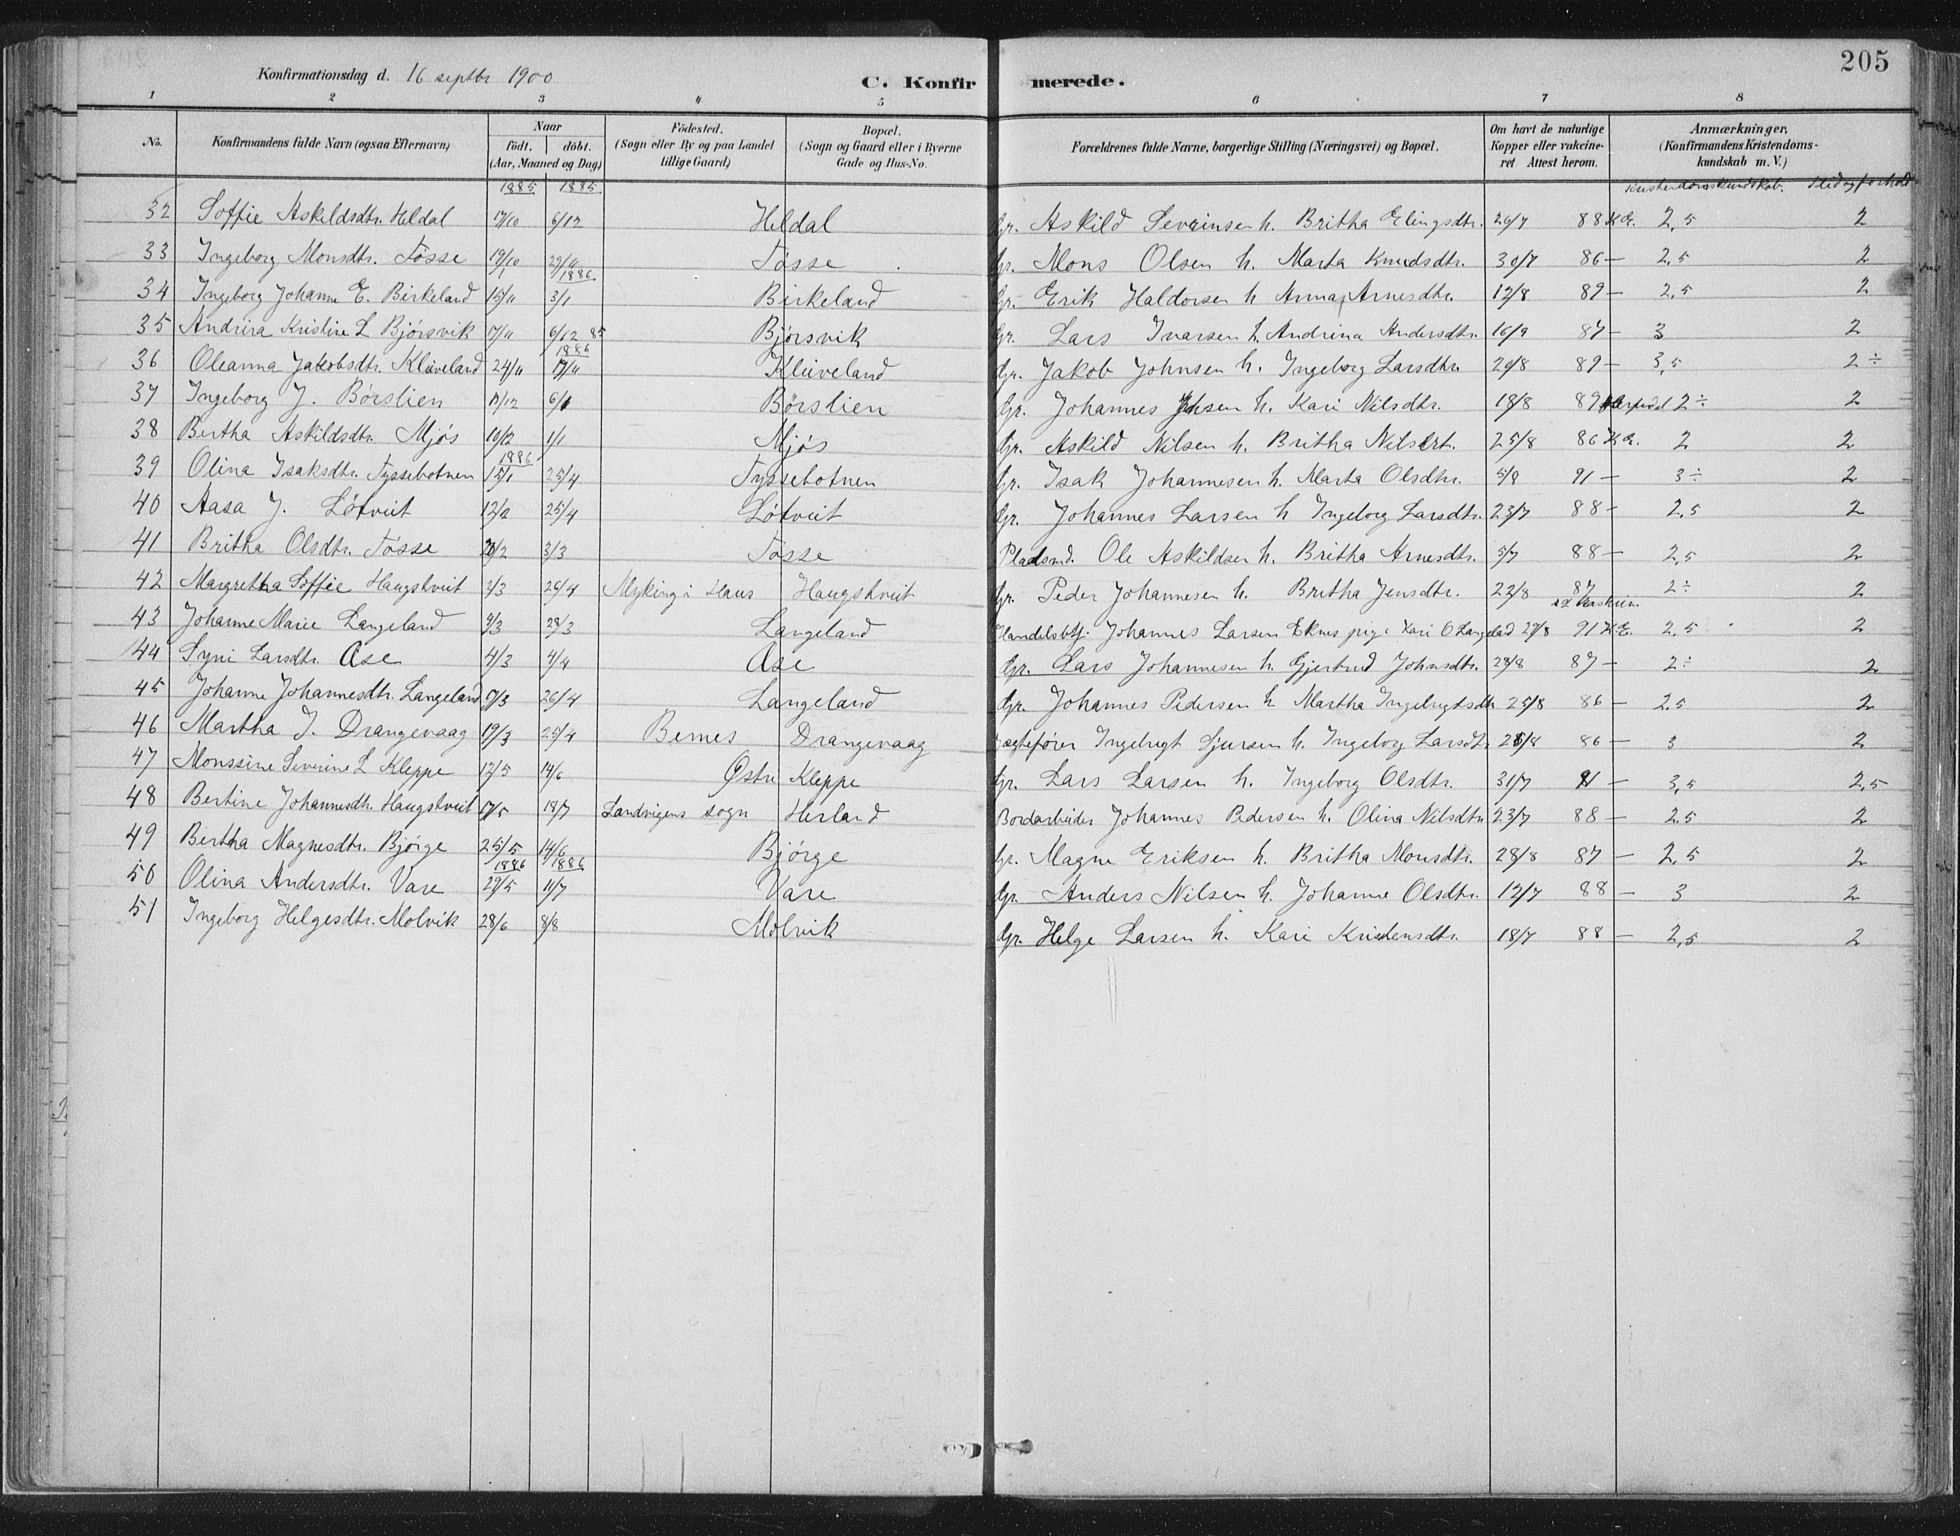 205
Konfirmationsdag d. 16 septbr 1900
C. Konfirmerede.
1 2 3 4 5 6 7 8
No. Konfirmandens fulde Navn (ogsaa Efternavn) Naar födt. döbt. (Aar, Maaned og Dag) Födested. (Sogn eller By og paa Landet tillige Gaard) Bopæl. (Sogn og Gaard eller i Byerne Gade og Hus-No. Forældrenes fulde Navne, borgerlige Stilling (Næringsvei) og Bopæl. Om havt de naturlige Kopper eller vakcineret Attest herom. Anmærkninger, (Konfirmandens Kristendomskundskab m. V.)
1885 1885 Kristendomskundskab. Flid og forhold
32 Soffie Askildsdtr. Heldal 17/10 6/12 Heldal Gr. Askild Severinsen h. Britha Elingsdtr. 26/7 88 2,5 2
33 Ingeborg Monsdtr. Tøsse 19/10 29/11 Tøsse Gr. Mons Olsen h. Marta Knudsdtr. 30/7 86 — 2,5 2
1886
34 Ingeborg Johanne E. Birkeland 15/11 3/1 Birkeland Gr. Erik Haldorsen h Anna Arnesdtr. 12/8 89 — 2,5 2
35 Andrina Kristine L Bjørsvik 17/11 6/12 85 Bjørsvik Gr. Lars Ivarsen h Andrina Andersdtr. 16/9 87 — 3 2
1886
36 Oleanna Jakobsdtr. Kleiveland 24/11 Kleiveland Gr. Jakob Johnsen h. Ingeborg Larsdtr. 29/8 89 — 3,5 2÷
37 Ingeborg J. Børslien 17/12 6/1 Børslien Gr. Johannes h. Kari Nilsdtr. 18/8 89 2÷ 2
38 Bertha Askildsdtr. Mjøs 10/12 1/1 Mjøs Gr. Askild Nilsen h. Britha Nilsdtr. 25/8 86 2 2
1886
39 Olina Isaksdtr. Tyssebotnen 15/1 25/4 Tyssebotnen Gr. Isak Johannesen h. Marta Olsdtr. 5/8 91 — 3÷ 2
40 Aasa J. Løtveit 12/2 25/4 Løtveit Gr. Johannes Larsen h Ingeborg Larsdtr. 23/7 88 — 2,5 2
41 Britha Olsdtr. Tøsse 20/2 3/3 Tøsse Pladsmd. Ole Askildsen h. Britha Arnesdtr. 5/7 88 — 2,5 2
42 Margretha Soffie Haugstveit 2/3 26/4 Myking i Haus Haugstveit Gr. Peder Johannesen h. Britha Jensdtr. 22/8 87 2÷ 2
43 Johanne Marie Langeland 4/3 28/3 Langeland Handelsbtj. Johannes Larsen Eknes pige Kari O Langeland 27/8 91 2,5 2
44 Syni Larsdtr. Ase 4/3 4/4 Ase Gr. Lars Johannesen h. Gjertrud Johnsdtr. 28/8 87 — 2÷ 2
45 Johanne Johannesdtr. Langeland 9/3 26/4 Langeland Gr. Johannes Pedersen h Martha Ingebrigtsdtr 25/8 86 — 2,5 2
46 Martha I. Drangevaag 19/3 25/4 Bernes Drangevaag Jægtefører Ingebrigt Sjursen h. Ingeborg Larsdtr 86 — 3 2
47 Monssine Severine L Kleppe 12/5 14/6 Østre Kleppe Gr. Lars Larsen h. Ingeborg Olsdtr. 31/7 91 — 3,5 2,5
48 Bertine Johannesdtr. Haugstveit 17/5 18/7 Sandvigens sogn Herland Bordarbeider Johannes Pedersen h. Olina Nilsdtr 23/7 88 — 2.5 2
49 Bertha Magnesdtr. Bjørge 25/5 14/6 Bjørge Gr. Magne Eriksen h. Britha Monsdtr. 28/8 87 — 2,5 2
1886 1886
50 Olina Andersdtr. Vare 29/5 11/7 Vare Gr. Anders Nilsen h. Johanne Olsdtr. 12/7 88 — 3 2
51 Ingeborg Helgesdtr. Molvik 28/6 8/8 Molvik Gr. Helge Larsen h. Kari Kristensdtr. 18/7 88 — 2,5 2